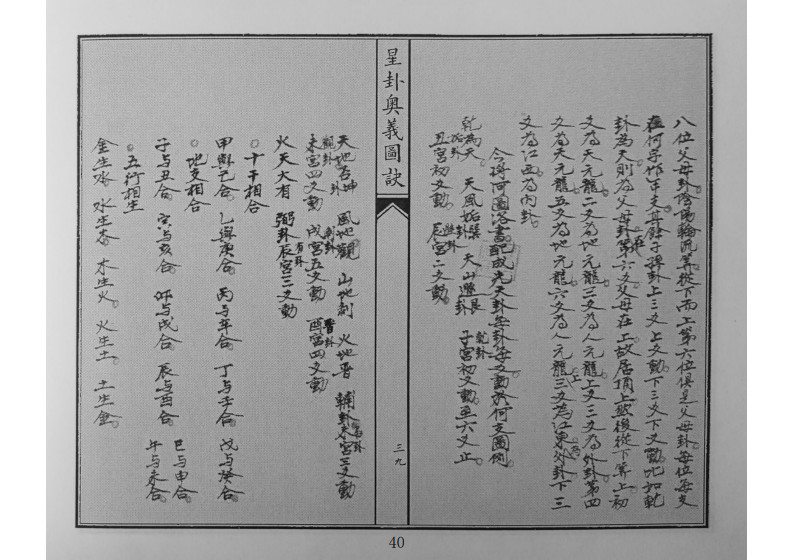 八位父母卦陰陽輪流算從下而上第六位俱是父母卦每位每支
在何子作甲支其餘子孫卦上三爻上爻動下三爻下爻動比如乾
卦為天則為父母卦第六爻父母在上故居頂上然後從下算上初
爻為天元龍二爻為地元龍三爻為人元龍上爻三爻為外卦第四
爻為天元龍五爻為地元龍六爻為人元龍三爻為江東外卦下三
爻為江西為內卦
今將河圖洛書配成先天卦每卦每爻動於何支圖例
乾為天 天風姤巽 天山遯艮 子宮初爻動至六爻止
姤卦 遯卦 乾卦
丑宮初爻動 辰宮二爻動
星卦奧義圖訣
三九
天地否坤 風地觀 山地剝 火地晋 輔卦未宮三爻動
觀卦 否卦 剝卦 晋卦 否卦
未宮四爻動 戌宮五爻動 酉宮四爻動
火天大有 弼卦辰宮三爻動
有卦
十干相合
甲與己合 乙與庚合 丙与辛合 丁与壬合 戊与癸合
地支相合
子与丑合 寅与亥合 卯与戌合 辰与酉合 巳与申合
午与未合
五行相生
金生水 水生木 木生火 火生土 土生金
40